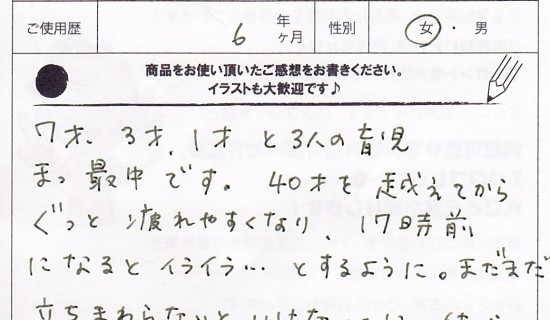 ご使用歴 6 年 ヶ月 性別 女・男
商品をお使い頂いたご感想をお書きください。
イラストも大歓迎です♪
7才、3才、1才と3人の育児
まっ最中です。40才を越えてから
ぐっと疲れやすくなり 17時前
になるとイライラ…とするように。まだまだ
立ちまわらないと